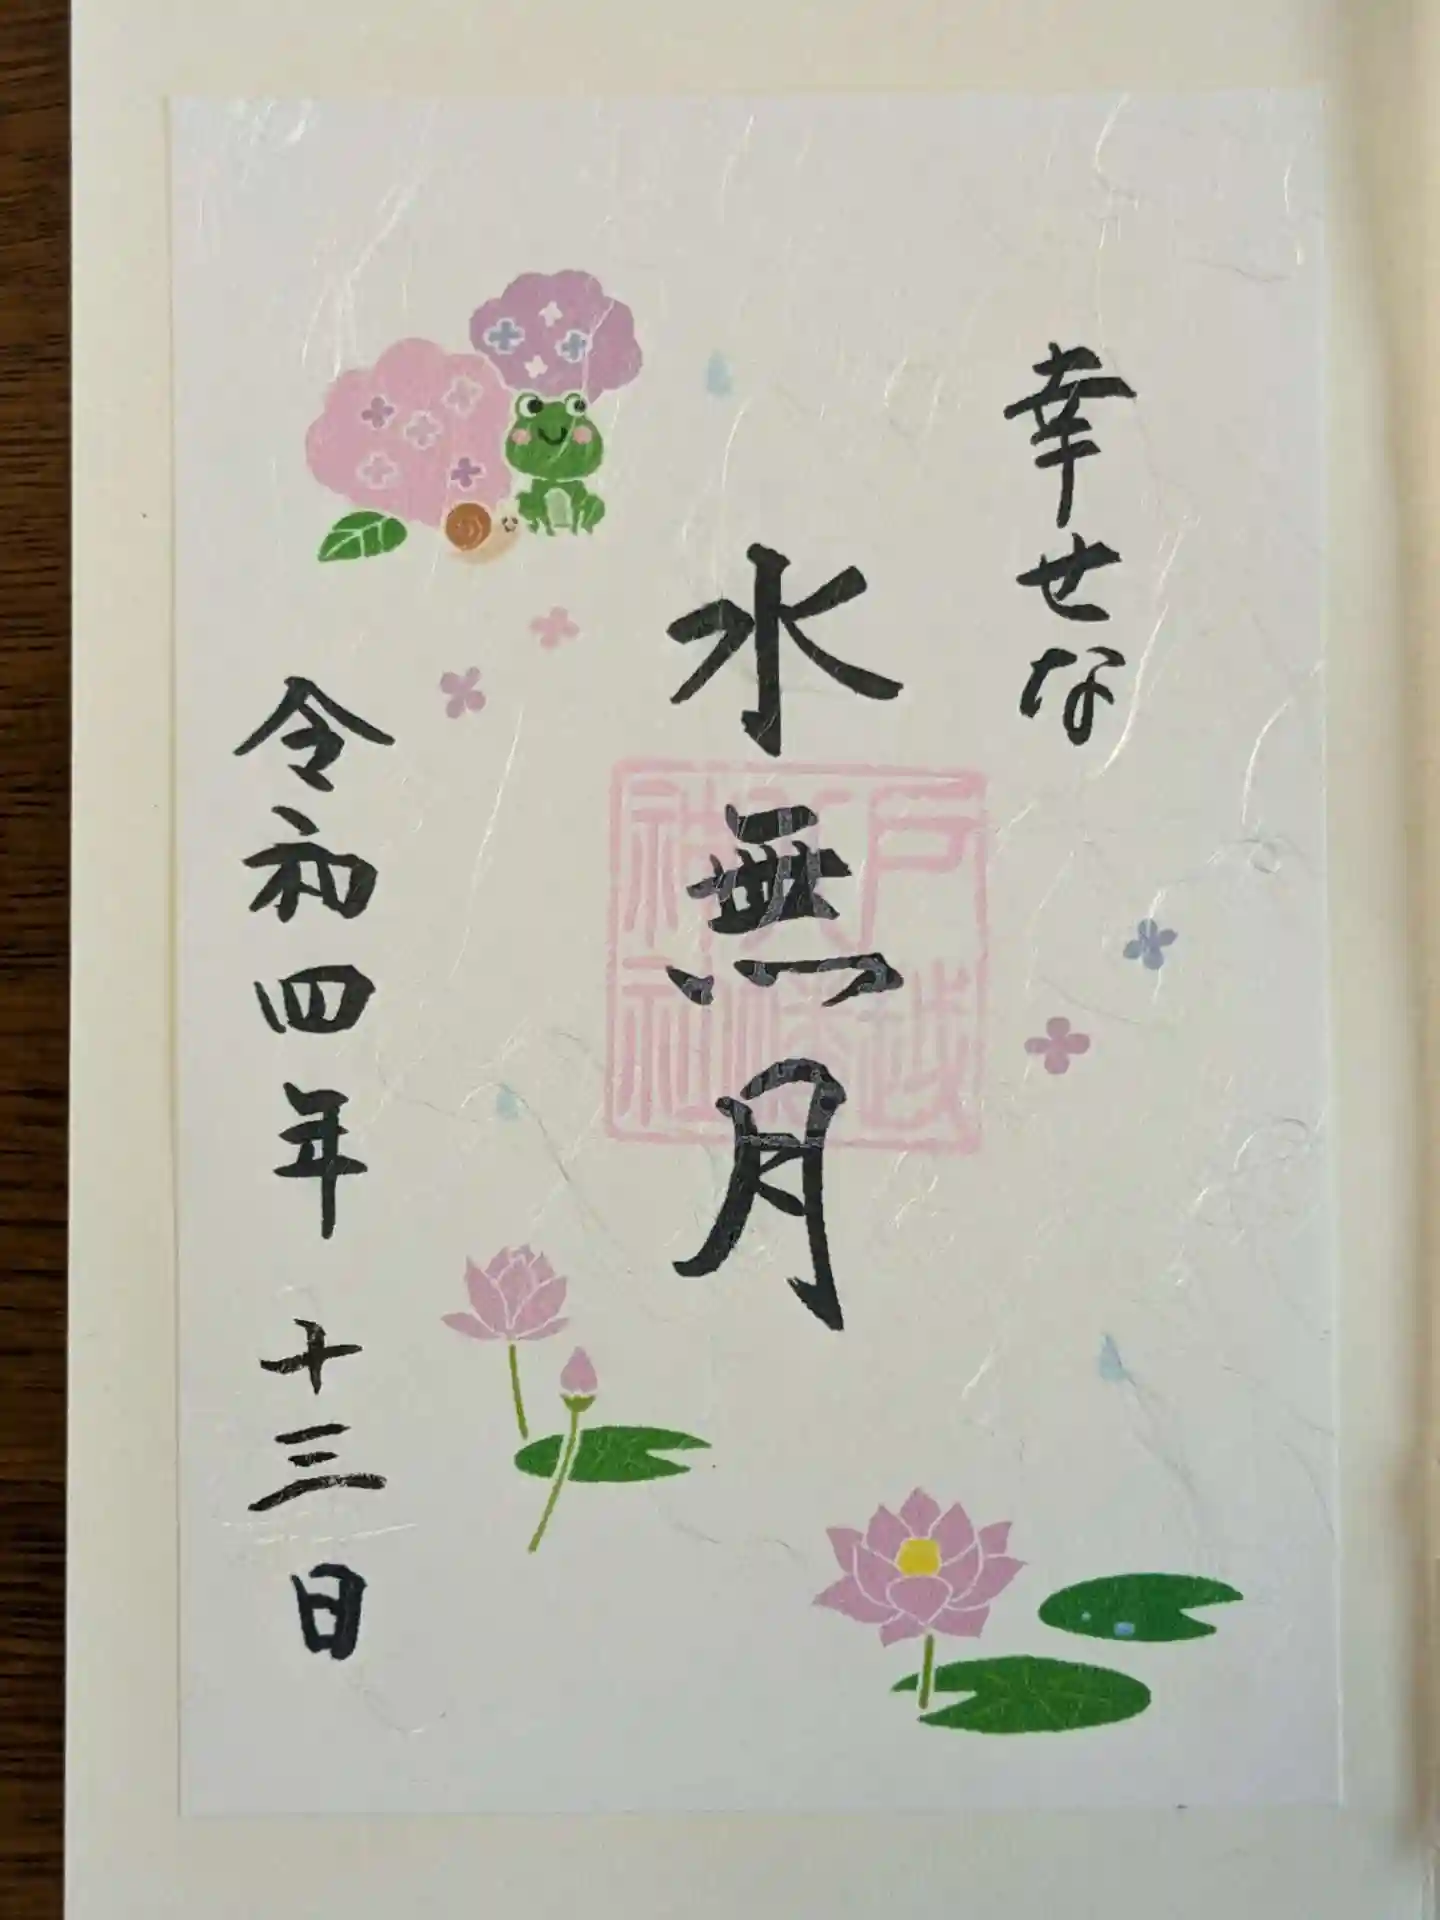 幸せな
水無月
戸越八幡神社
令和四年 十三日